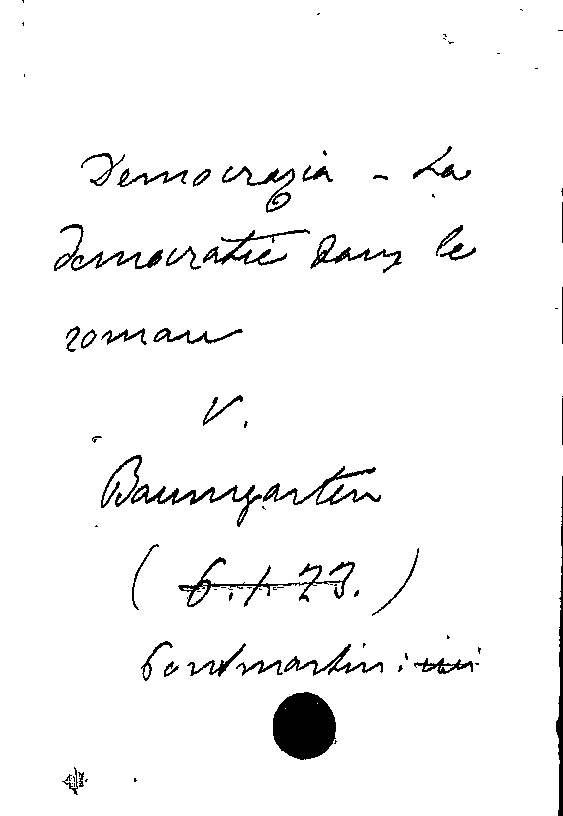 Democrazia - La
démocratie dans le
roman
V.
Baumgarten
(6.1.23.)
Pontmartin: